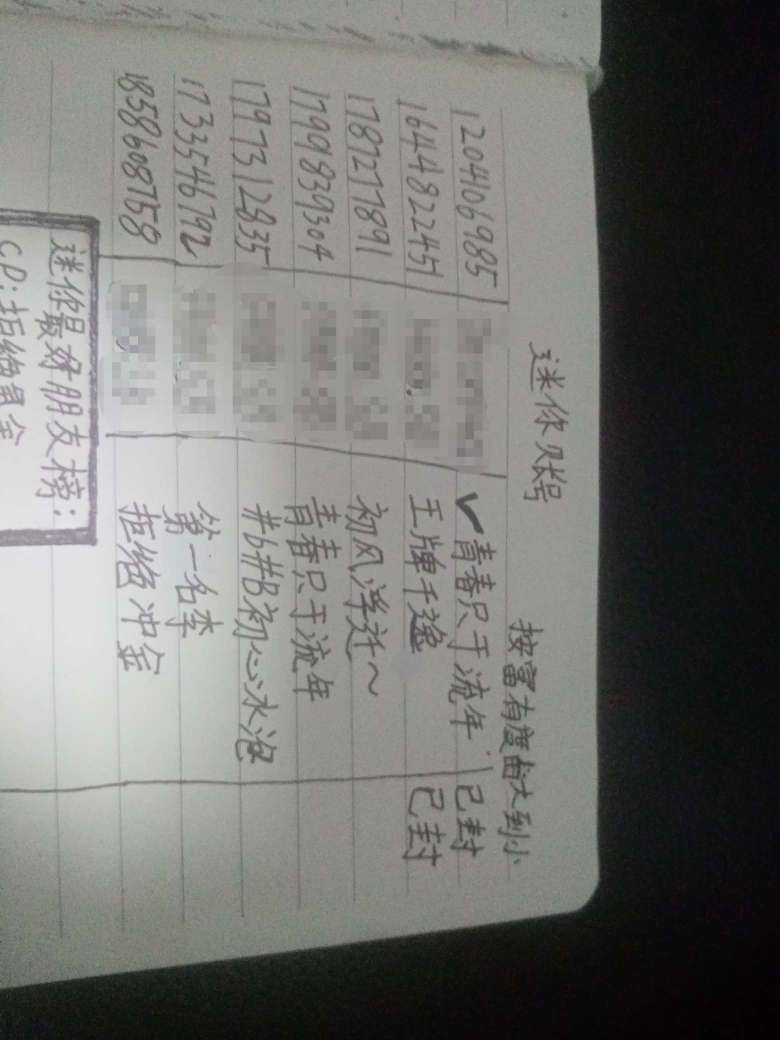 迷你账号 按富有度由大到小
1204106985 ✓青春只于流年 已封
1644822451 王牌千逸 已封
1787277891 初风洋迁~
1790839304 青春只于流年
1797312835 #b#B初心水泡
1733546792 第一名李
1858608758 拒绝冲金
迷你最好朋友榜:
CP:拒绝